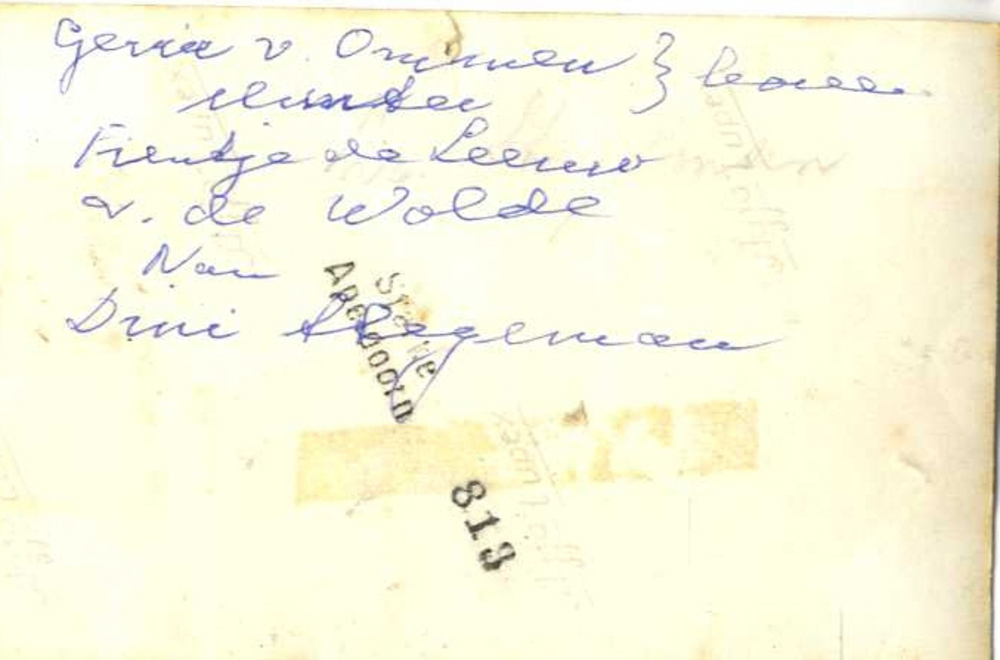 Gerrie v. Ommen } boven
Fientje de Leeuw
v. de Wolde
Nan
Dini Slageman
Apeldoorn
813